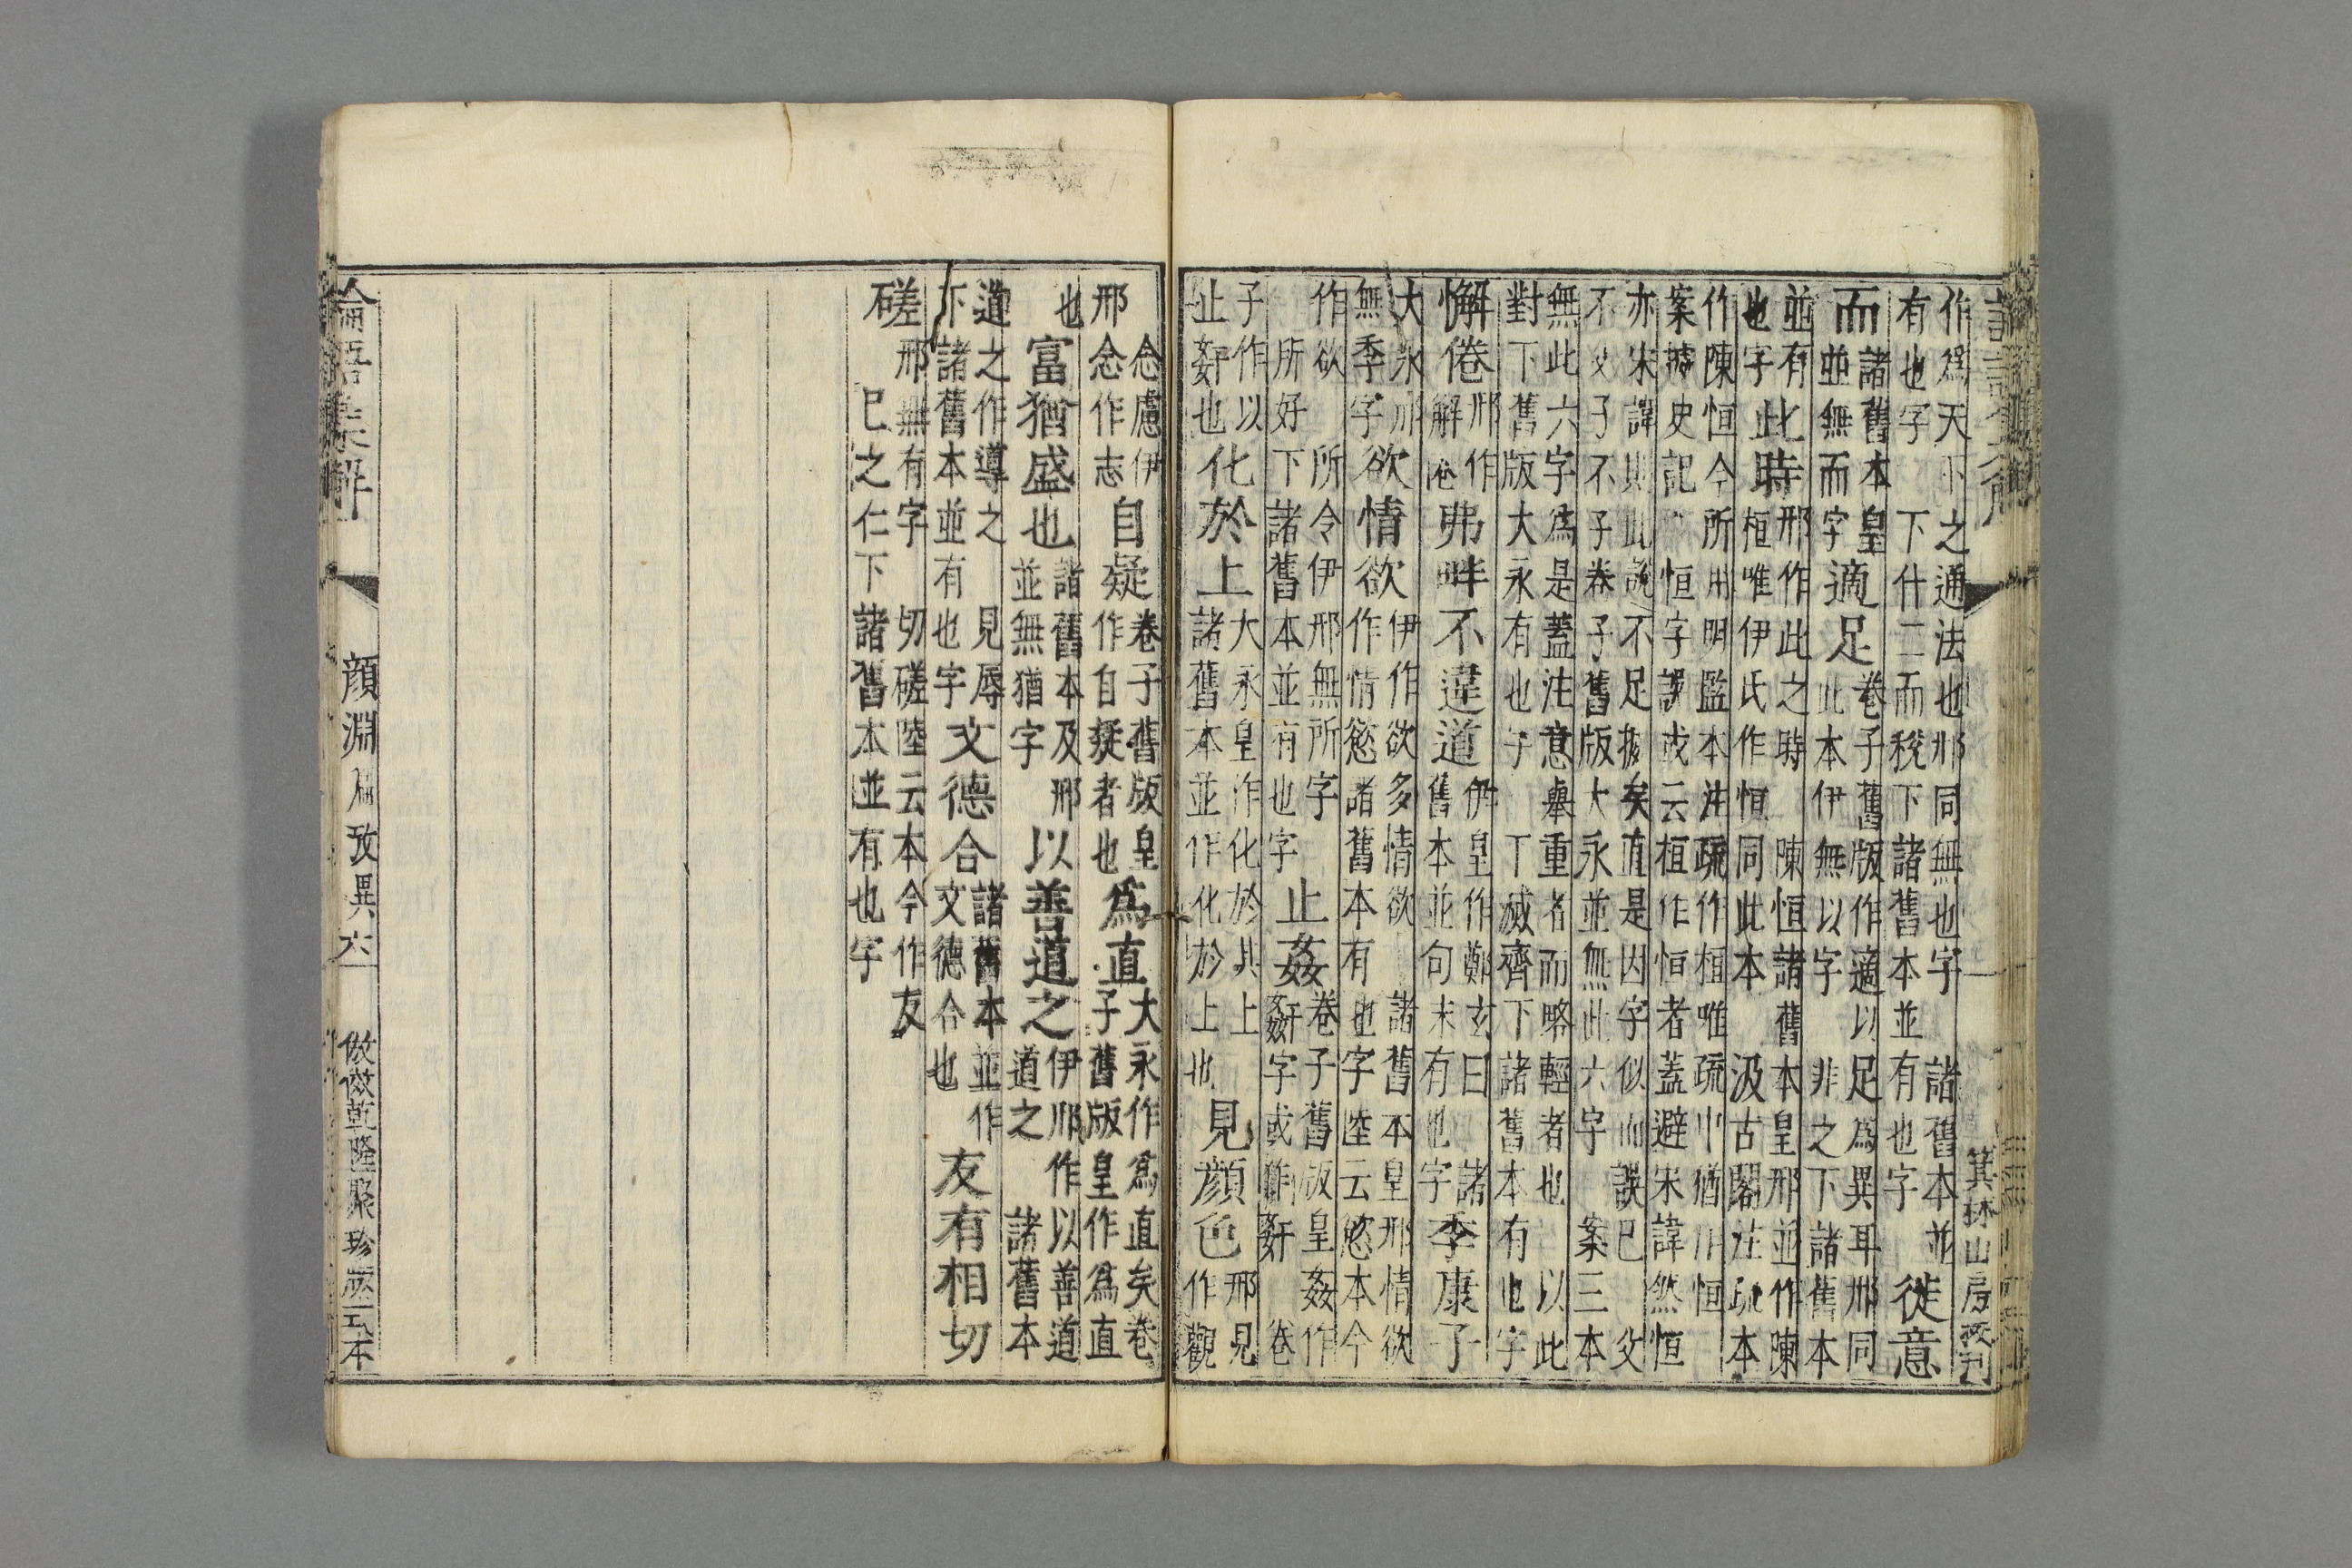 作爲天下之通法也邢同無也字 諸舊本並
有也字 下什二而稅下諸舊本並有也字
徙意
而
諸舊本皇
並無而字
適足
卷子舊版作適以足爲異耳邢同
此本伊無以字 非之下諸舊本
並有
也字
此時
邢作此之時 陳恒諸舊本皇邢並作陳
桓唯伊氏作恒同此本 汲古閣注疏本
作陳恒今所用明監本注疏作桓唯疏中猶用恒
案據史記 恒字誤或云桓作恒者蓋避宋諱然恒
亦宋諱則此說不足據矣直是因字似而誤已 父
不父子不子卷子舊版大永並無此六字 案三本
無此六字爲是蓋注意舉重者而略輕者也 以此
對下舊版大永有也字 丁滅齊下諸舊本有也字
懈倦
邢作
解倦
弗畔不違道
伊皇作鄭玄曰 諸
舊本並句末有也字
季康子
大永邢
無季字
欲情欲
伊作欲多情欲 諸舊本皇邢情欲
作情慾諸舊本有也字陸云慾本今
作欲 所令伊邢無所字
所好下諸舊本並有也字
止姦
卷子舊版皇姦作
姧字或作姧 卷
子作以
止姧也
化於上
大永皇作化於其上
諸舊本並作化於上也
見顏色
邢見
作觀
箕林山房改刊
念慮伊
邢念作志
自疑
卷子舊版皇
作自疑者也
爲直
大永作爲直矣卷
子舊版皇作爲直
也
富猶盛也
諸舊本及邢
並無猶字
以善道之
伊邢作以善道
道之 諸舊本
道之作導之 見辱
下諸舊本並有也字
文德合
諸舊本並作
文德合也
友有相切
磋
邢無有字 切磋陸云本今作友
已之仁下諸舊本並有也字
論語集解 顏淵篇攷異 六 倣倣乾隆聚珍叢式本